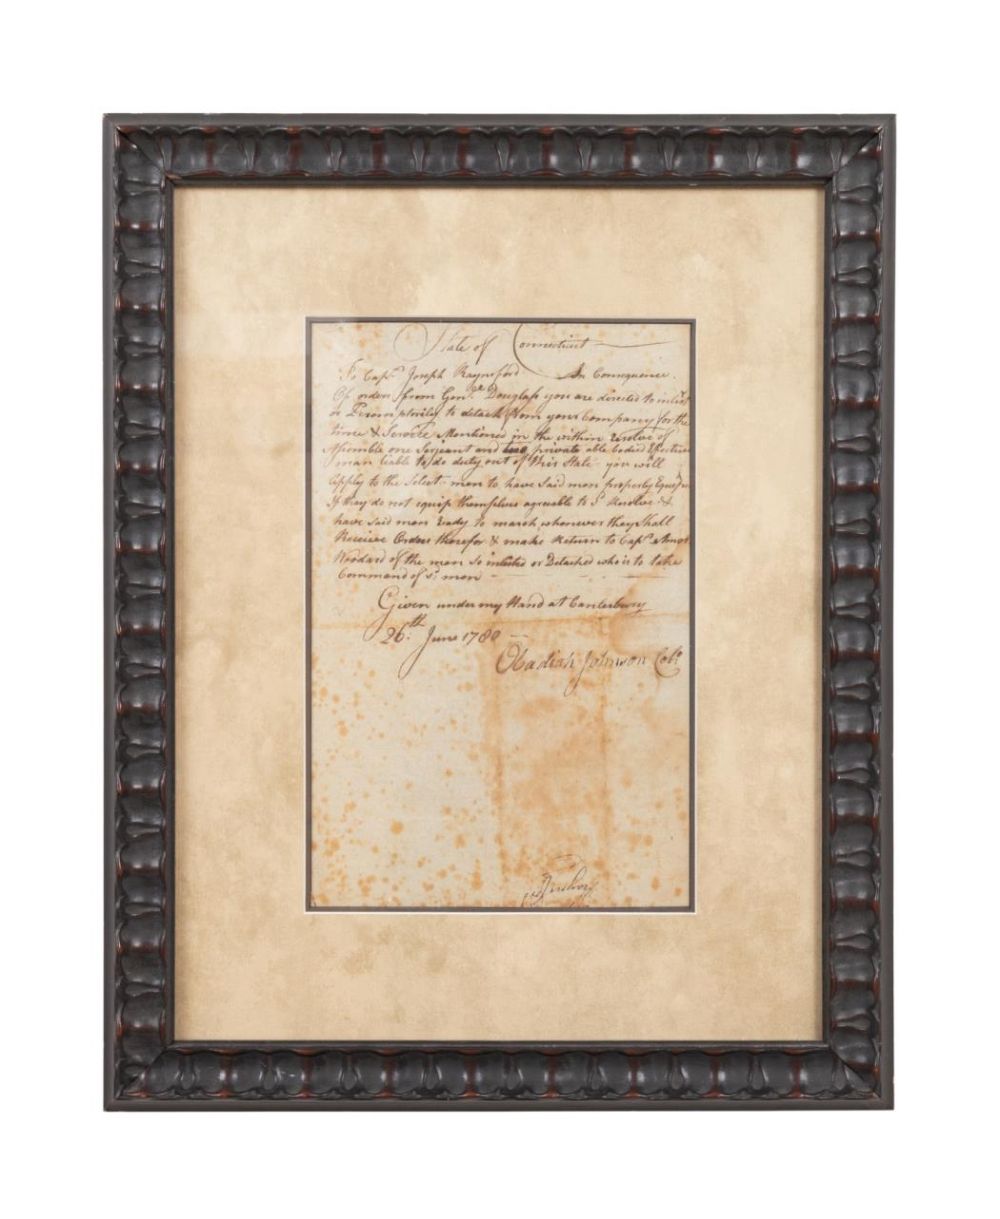 State of Connecticut
To Capn. Joseph Raynsford In Consequence
Of orders from Genrl. Douglass you are directed to inlist
or Peremptorily to detach from your Company for the
time & Service Mentioned in the within Resolve of
Assemble one Serjeant and two private able Bodied Effective
man liable to do duty out of this State you will
Apply to the Select men to have said men properly Equipt
If they do not equip themselves agreable to sd. Resolve &
have said men ready to march whenever they Shall
Receive Orders therefor & make Return to Capn. Amos
Woodard of the men so inlisted or Detached who is to take
Command of sd. men
Given under my Hand at Canterbury
26th. June 1780
Obadiah Johnson Colo.